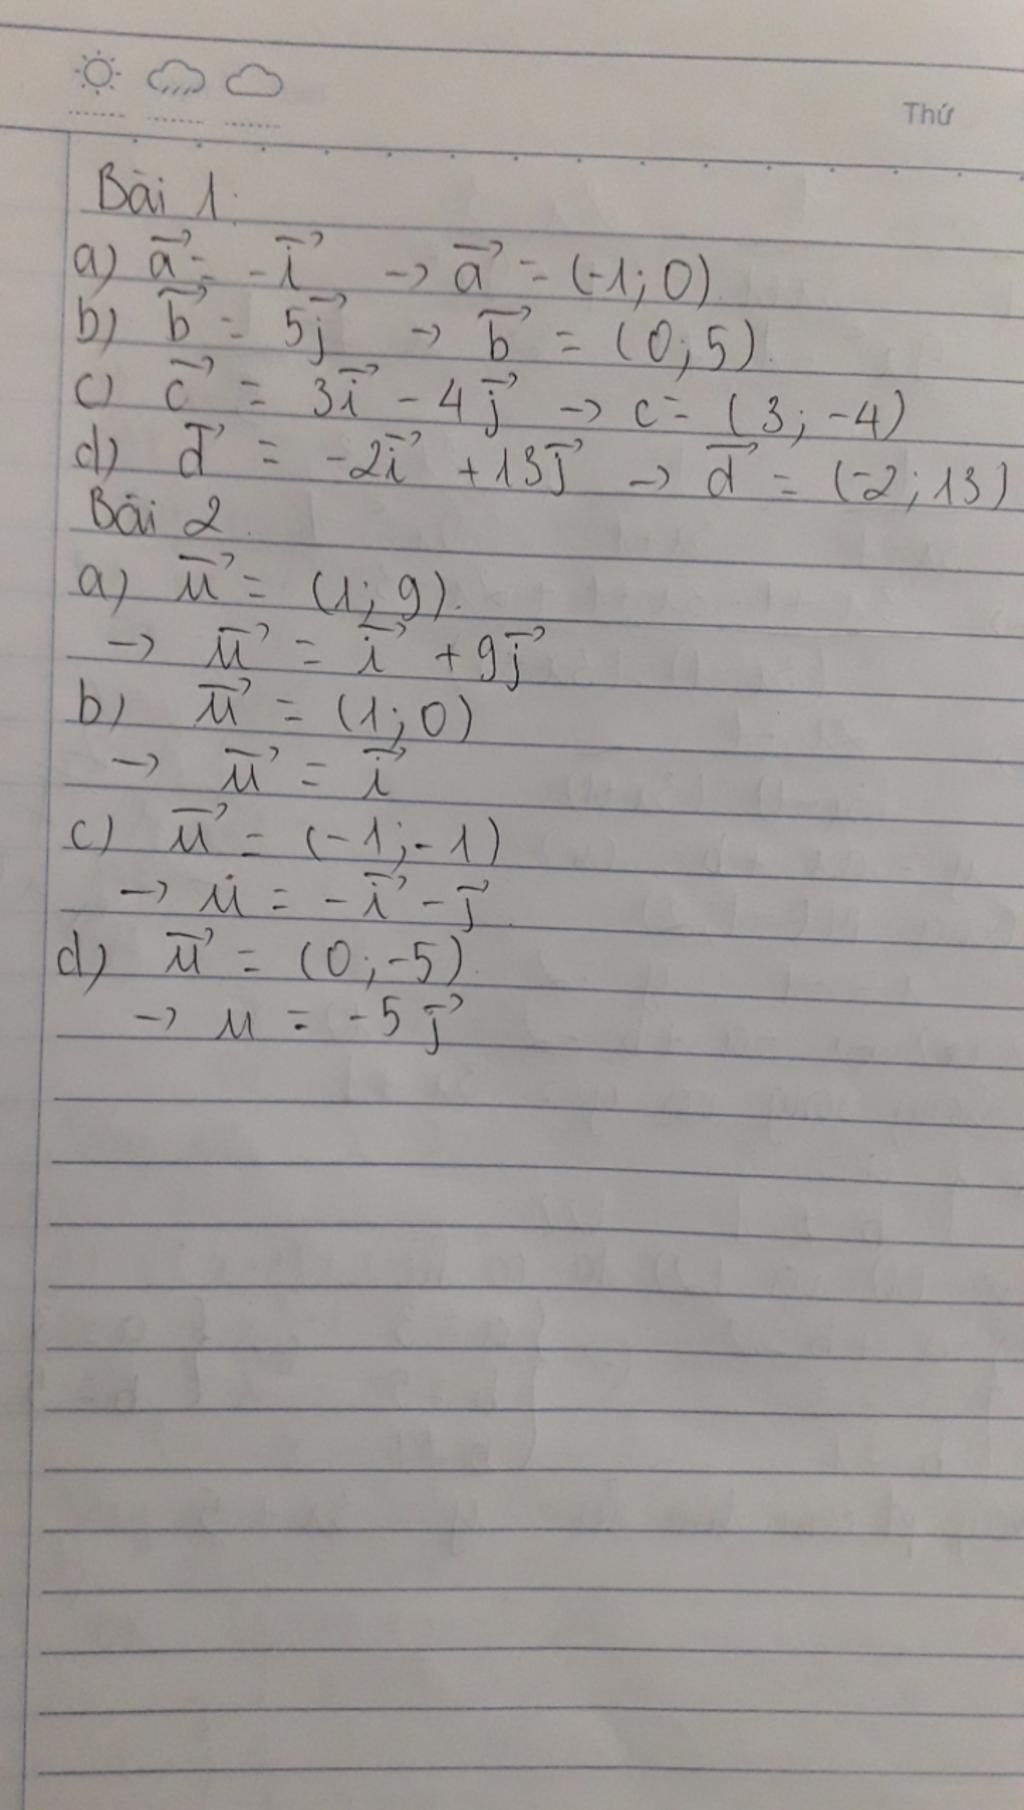 Thứ
Bài 1.
a) a⃗ = -i⃗ → a⃗ = (-1; 0)
b) b⃗ = 5j⃗ → b⃗ = (0; 5).
c) c⃗ = 3i⃗ - 4j⃗ → c = (3; -4)
d) d⃗ = -2i⃗ + 13j⃗ → d⃗ = (-2; 13)
Bài 2.
a) u⃗ = (1; 9).
→ u⃗ = i⃗ + 9j⃗
b) u⃗ = (1; 0)
→ u⃗ = i⃗
c) u⃗ = (-1; -1)
→ u = -i⃗ - j⃗
d) u⃗ = (0; -5).
→ u = -5j⃗